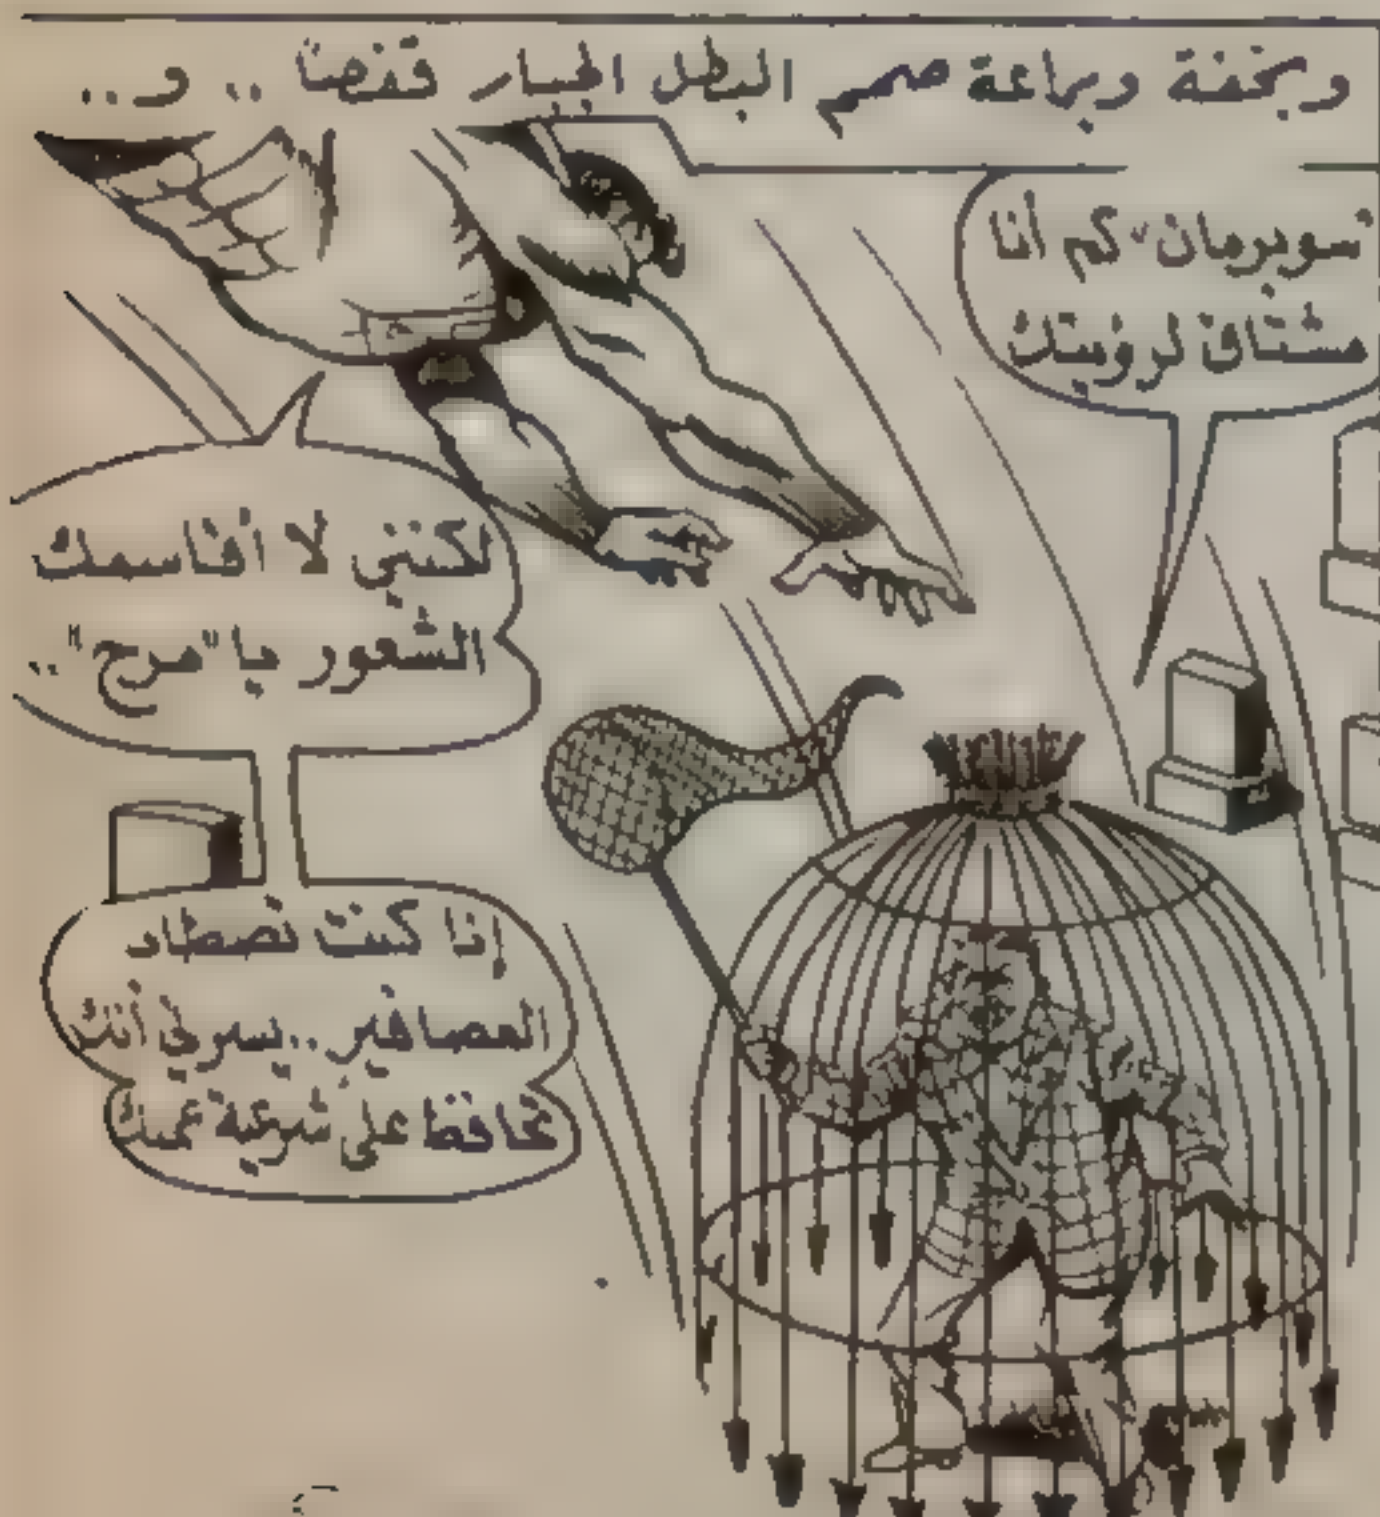 وبخفة وبراعة صمم البطل الجبار قفصاً .. و..
"سوبرمان" كم أنا
مشتاق لرؤيتك
لكنني لا أقاسمك
الشعور يا "مرح"..
إذا كنت تصطاد
العصافير..يسرني أنك
تحافظ على شرعية عملك